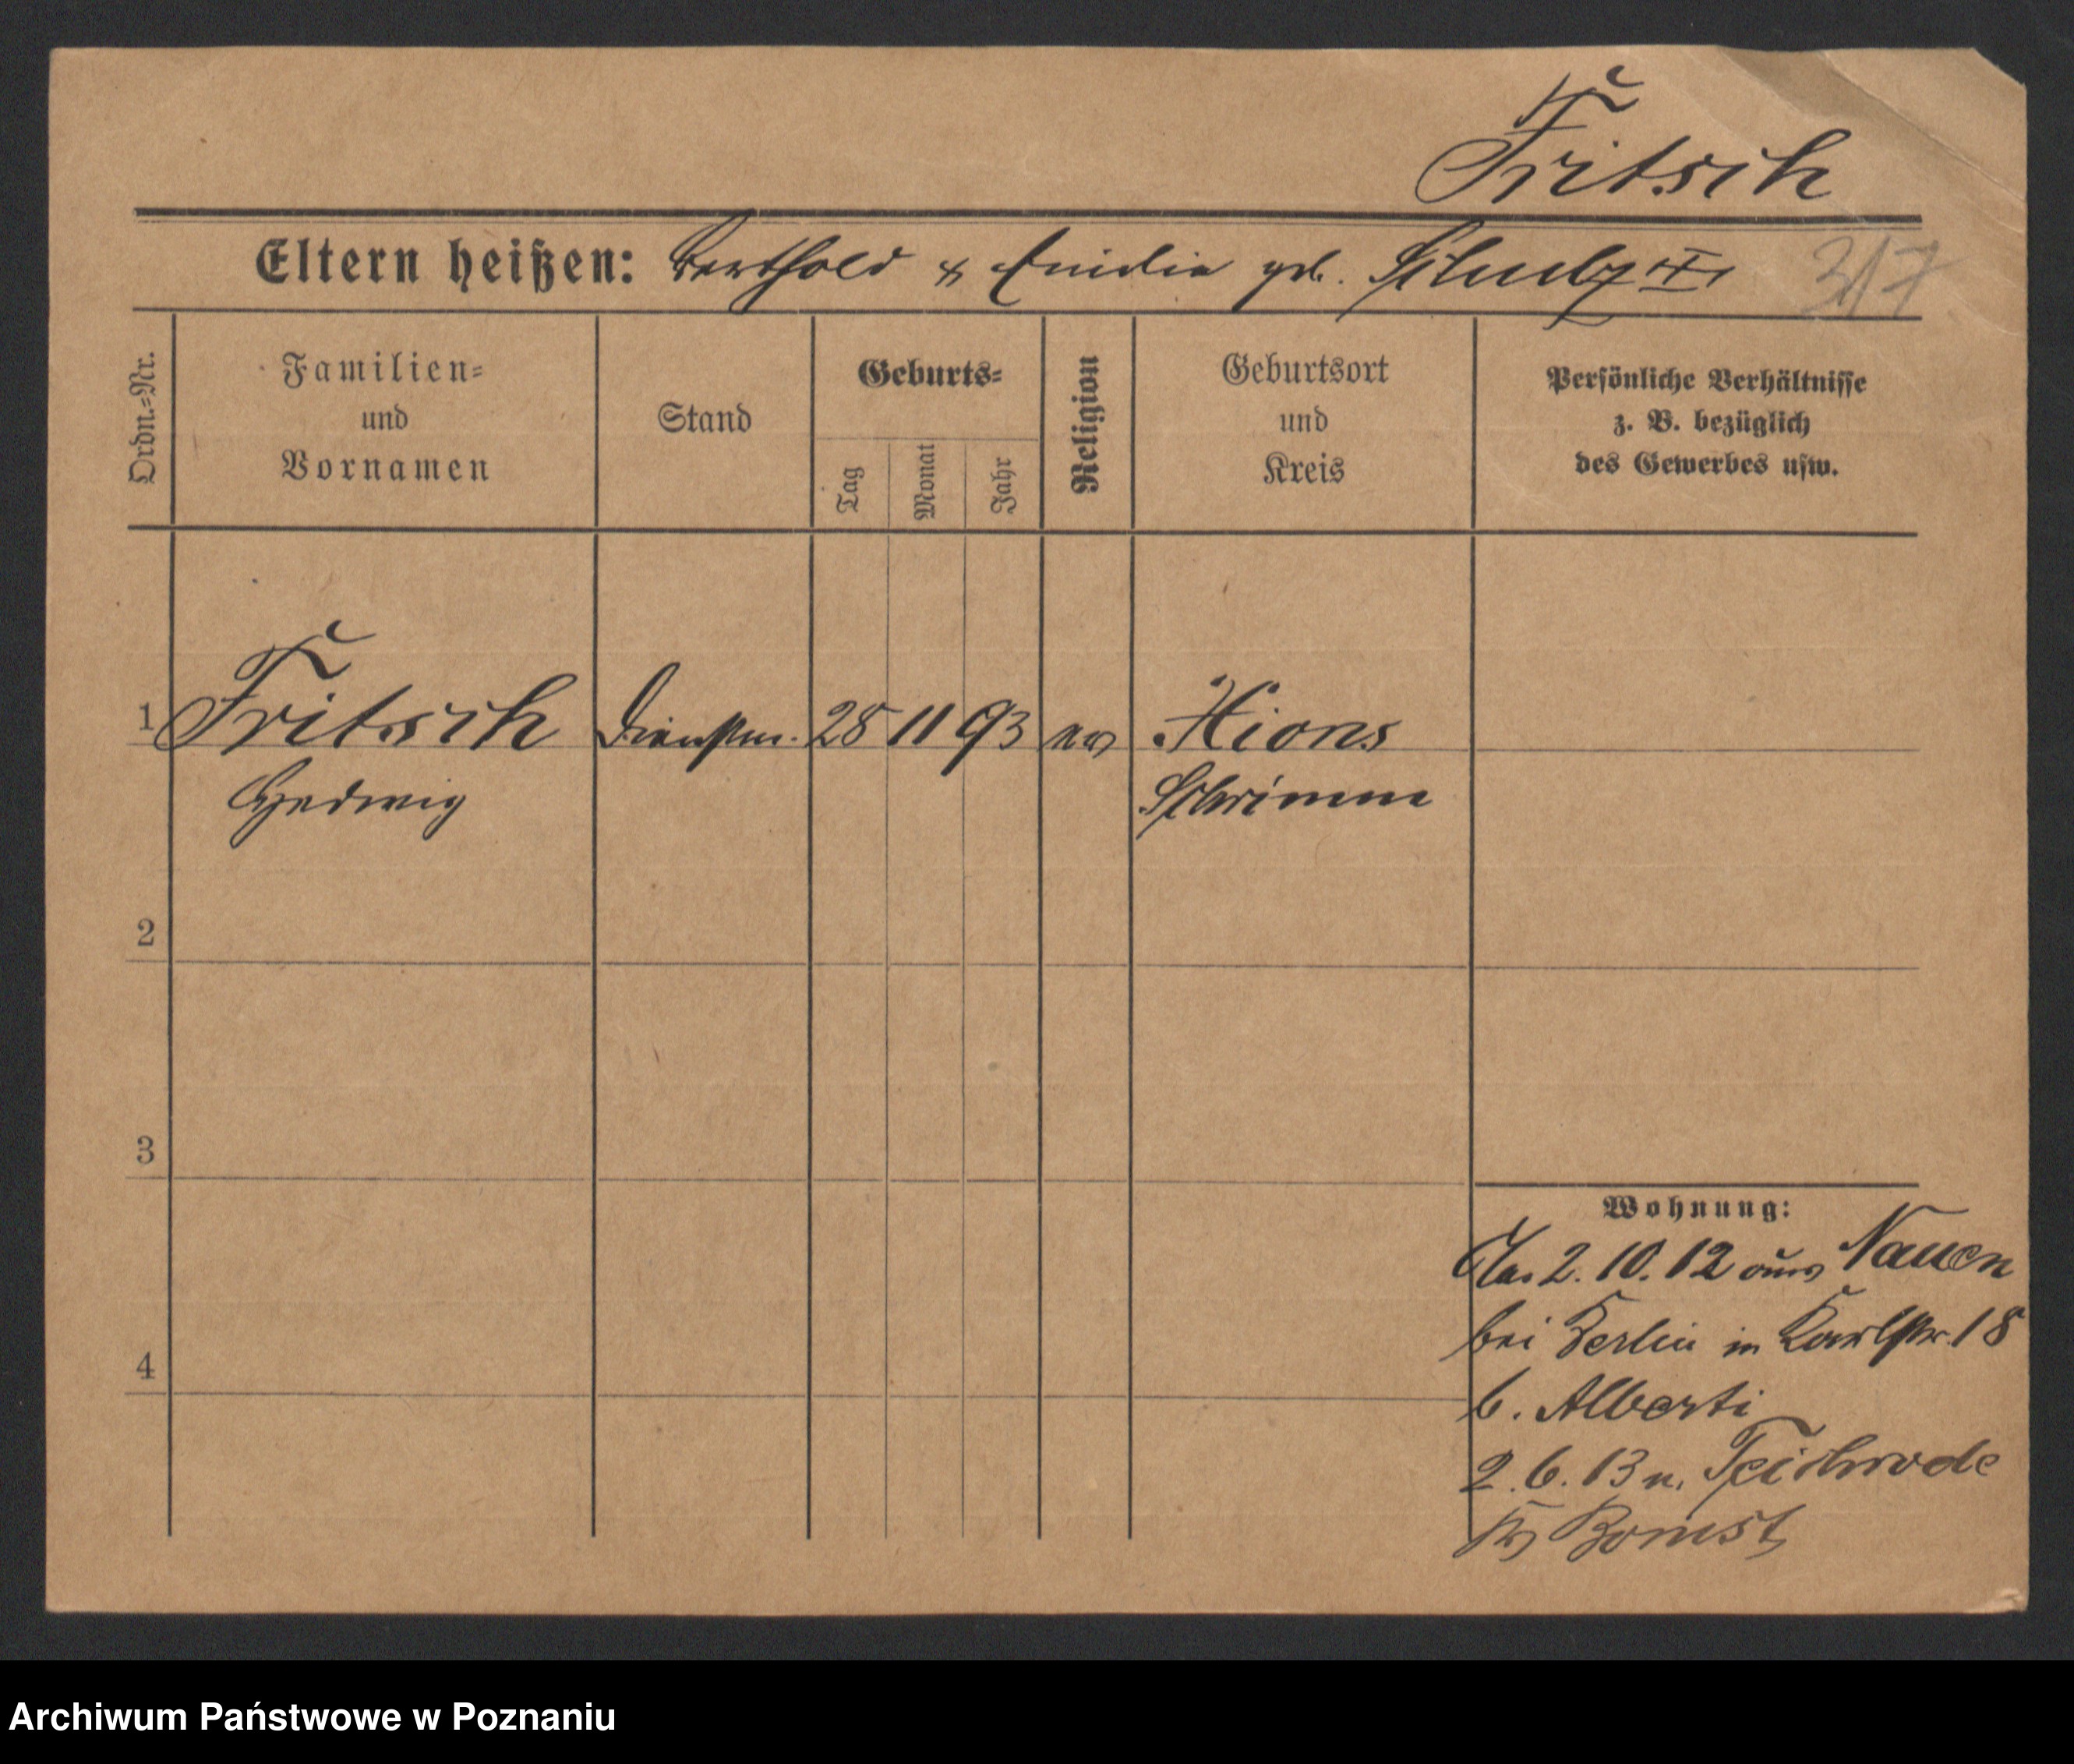 Fritsch
Eltern heißen: Berthold & Emilie geb. Schulz II 317
Ordn.=Nr.
Familien=
und
Vornamen
Stand
Geburts=
Tag
Monat
Jahr
Religion
Geburtsort
und
Kreis
Persönliche Verhältnisse
z. B. bezüglich
des Gewerbes usw.
1 Fritsch Dienstm. 28 11 93 ev Xions
Hedwig Schrimm
2
3
4
Wohnung:
2. 10. 12 aus Nauen
bei Berlin in Karlstr. 18
b. Alberti
2. 6. 13 n.
Kr Bomst
Archiwum Państwowe w Poznaniu